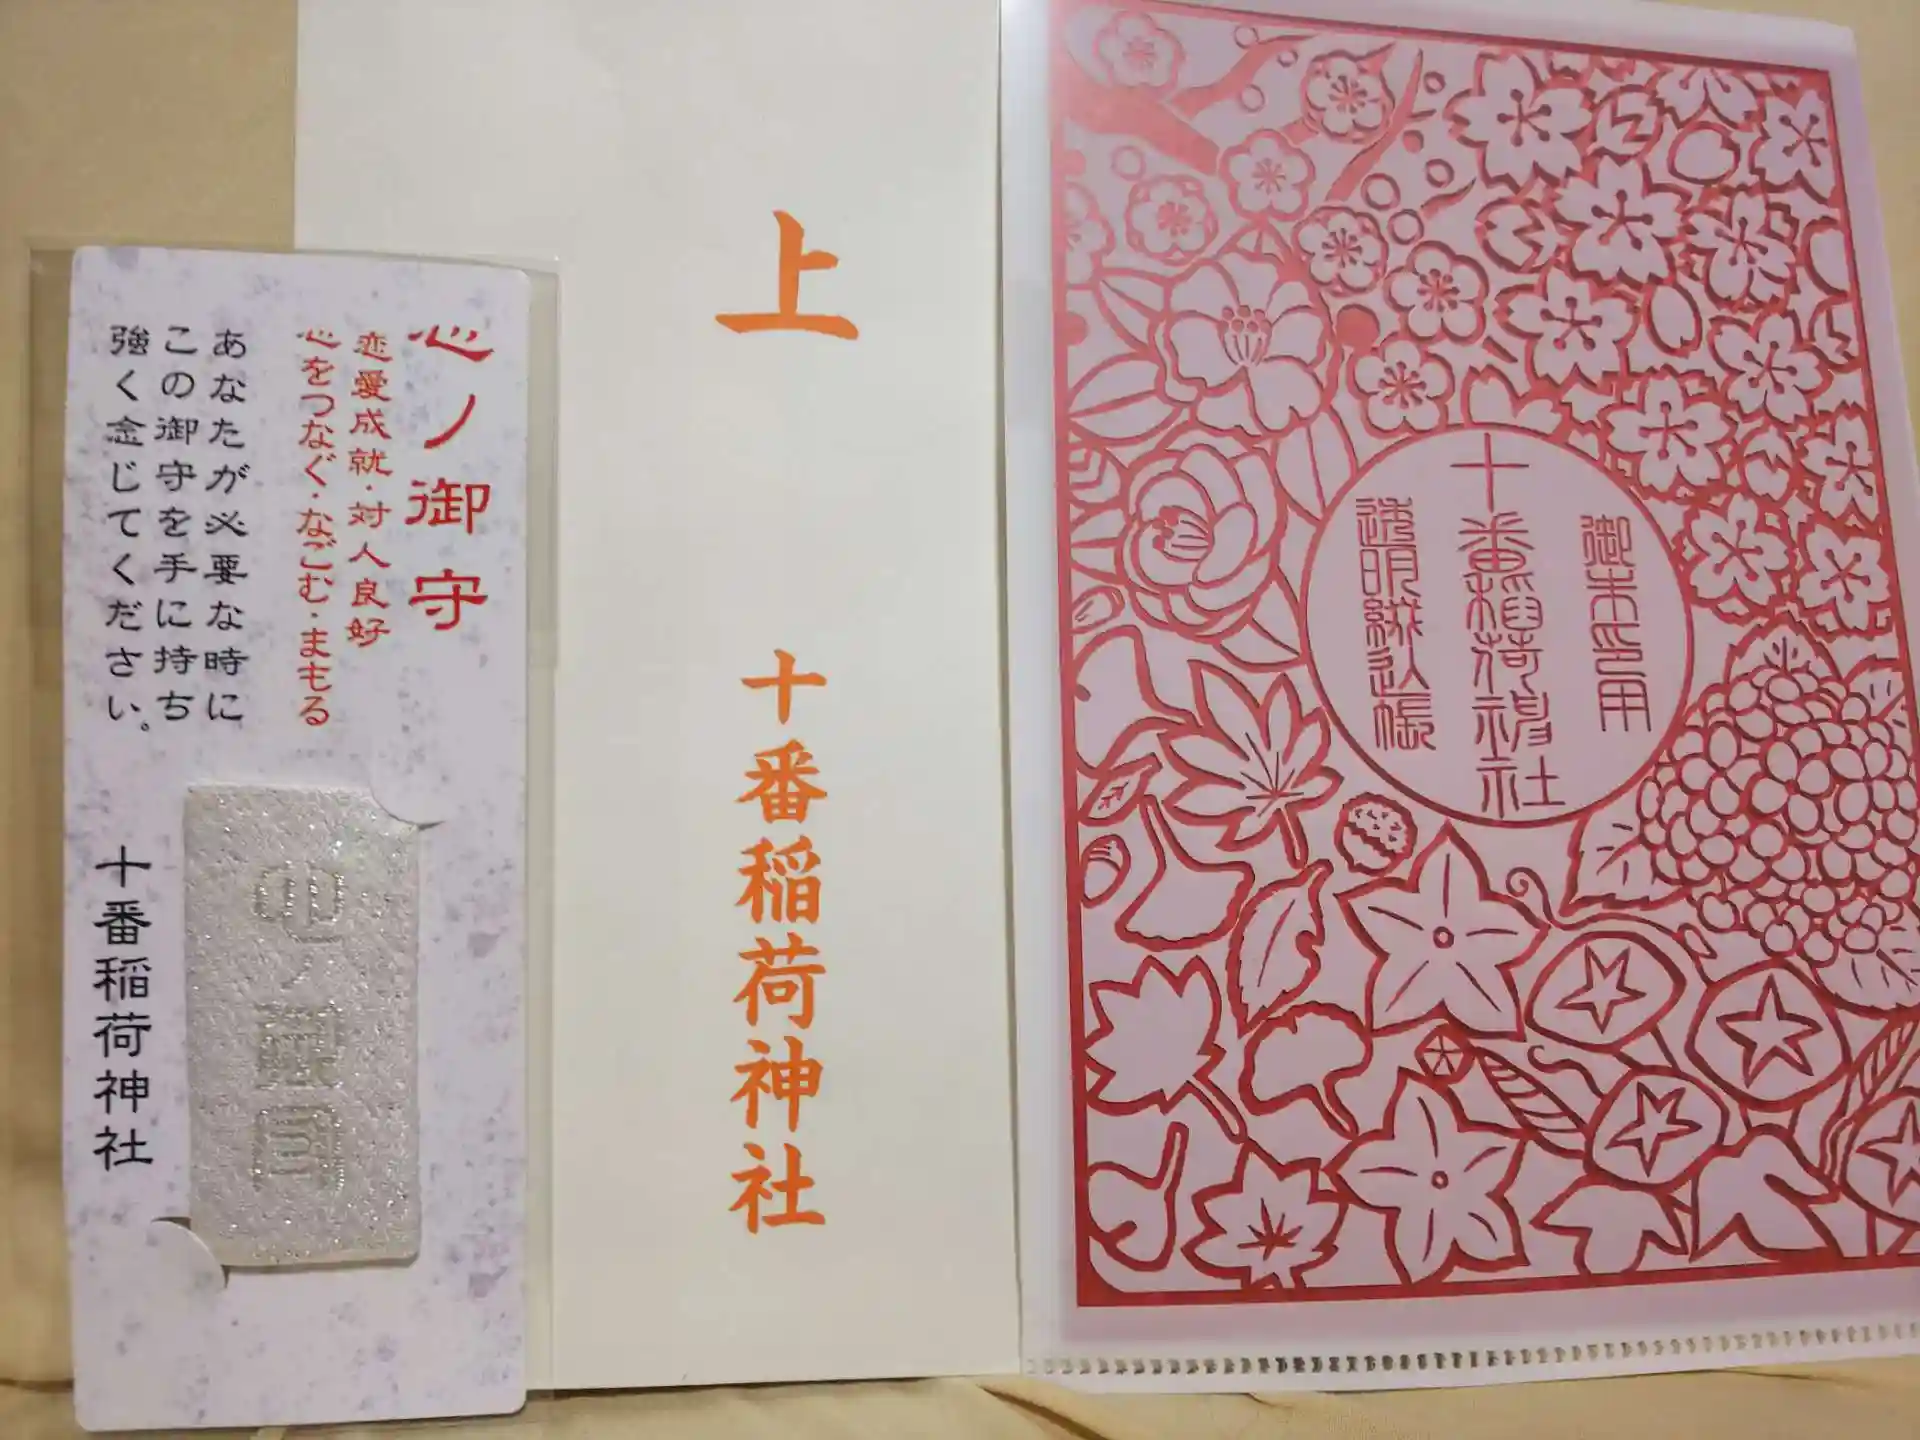 心ノ御守
恋愛成就・対人良好
心をつなぐ・なごむ・まもる
あなたが必要な時に
この御守を手に持ち
強く念じてください。
十番稲荷神社
上
十番稲荷神社
御朱印用
十番稲荷神社
透明綴込帳